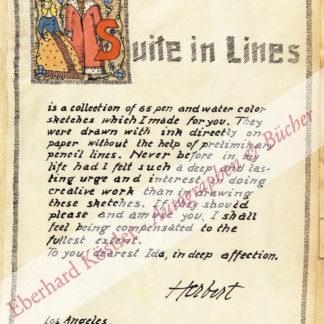 Suite in Lines
is a collection of 65 pen and water color
sketches which I made for you. They
were drawn with ink directly on
paper without the help of preliminary
pencil lines. Never before in my
life had I felt such a deep and las-
ting urge and interest in doing
creative work than in drawing
these sketches. If they should
please and amuse you, I shall
feel being compensated to the
fullest extent.
To you dearest Ida, in deep affection.
Herbert
Los Angeles
Autographen & Bücher